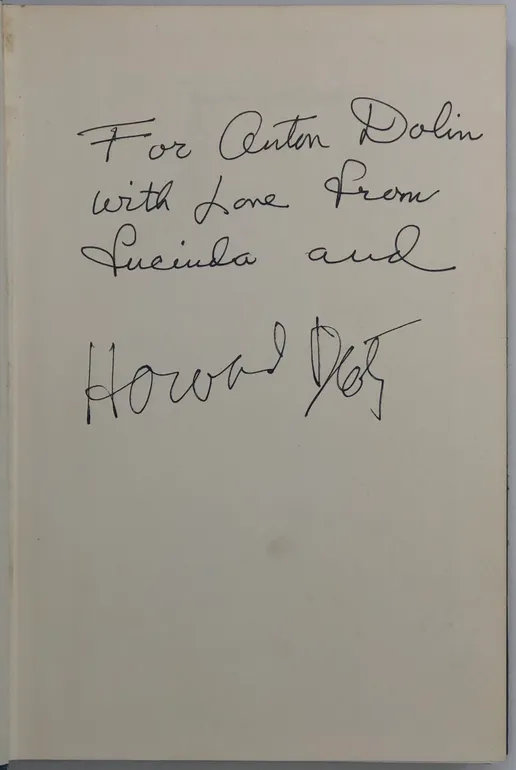 For Anton Dolin
with Love from
Lucinda and
Howard Dietz